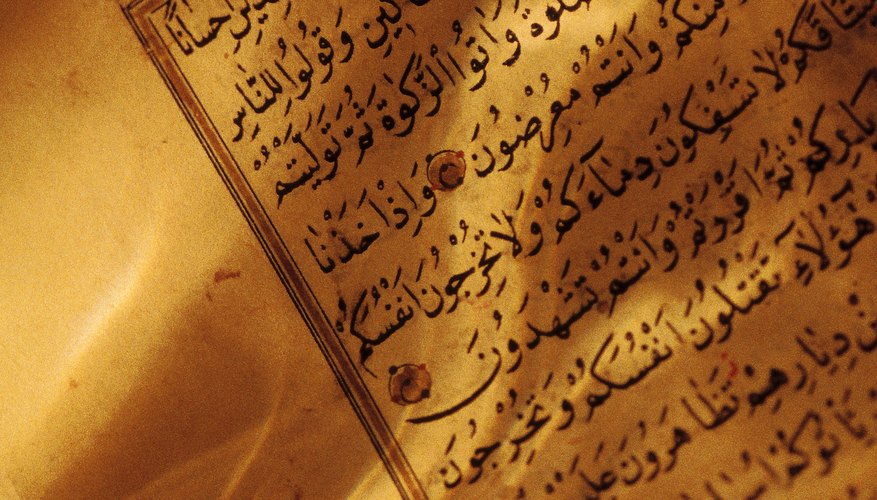 اِحْسَانًا
وَقُولُوا لِلنَّاسِ
وَاٰتُوا الزَّكٰوةَ ثُمَّ تَوَلَّيْتُمْ
مِنْكُمْ وَاَنْتُمْ مُعْرِضُونَ وَاِذْ اَخَذْنَا
مِيثَاقَكُمْ لَا تَسْفِكُونَ دِمَاءَكُمْ وَلَا تُخْرِجُونَ اَنْفُسَكُمْ
دِيَارِكُمْ ثُمَّ اَقْرَرْتُمْ وَاَنْتُمْ تَشْهَدُونَ
هٰؤُلَاءِ تَقْتُلُونَ اَنْفُسَكُمْ وَتُخْرِجُونَ
دِيَارِهِمْ تَظَاهَرُونَ